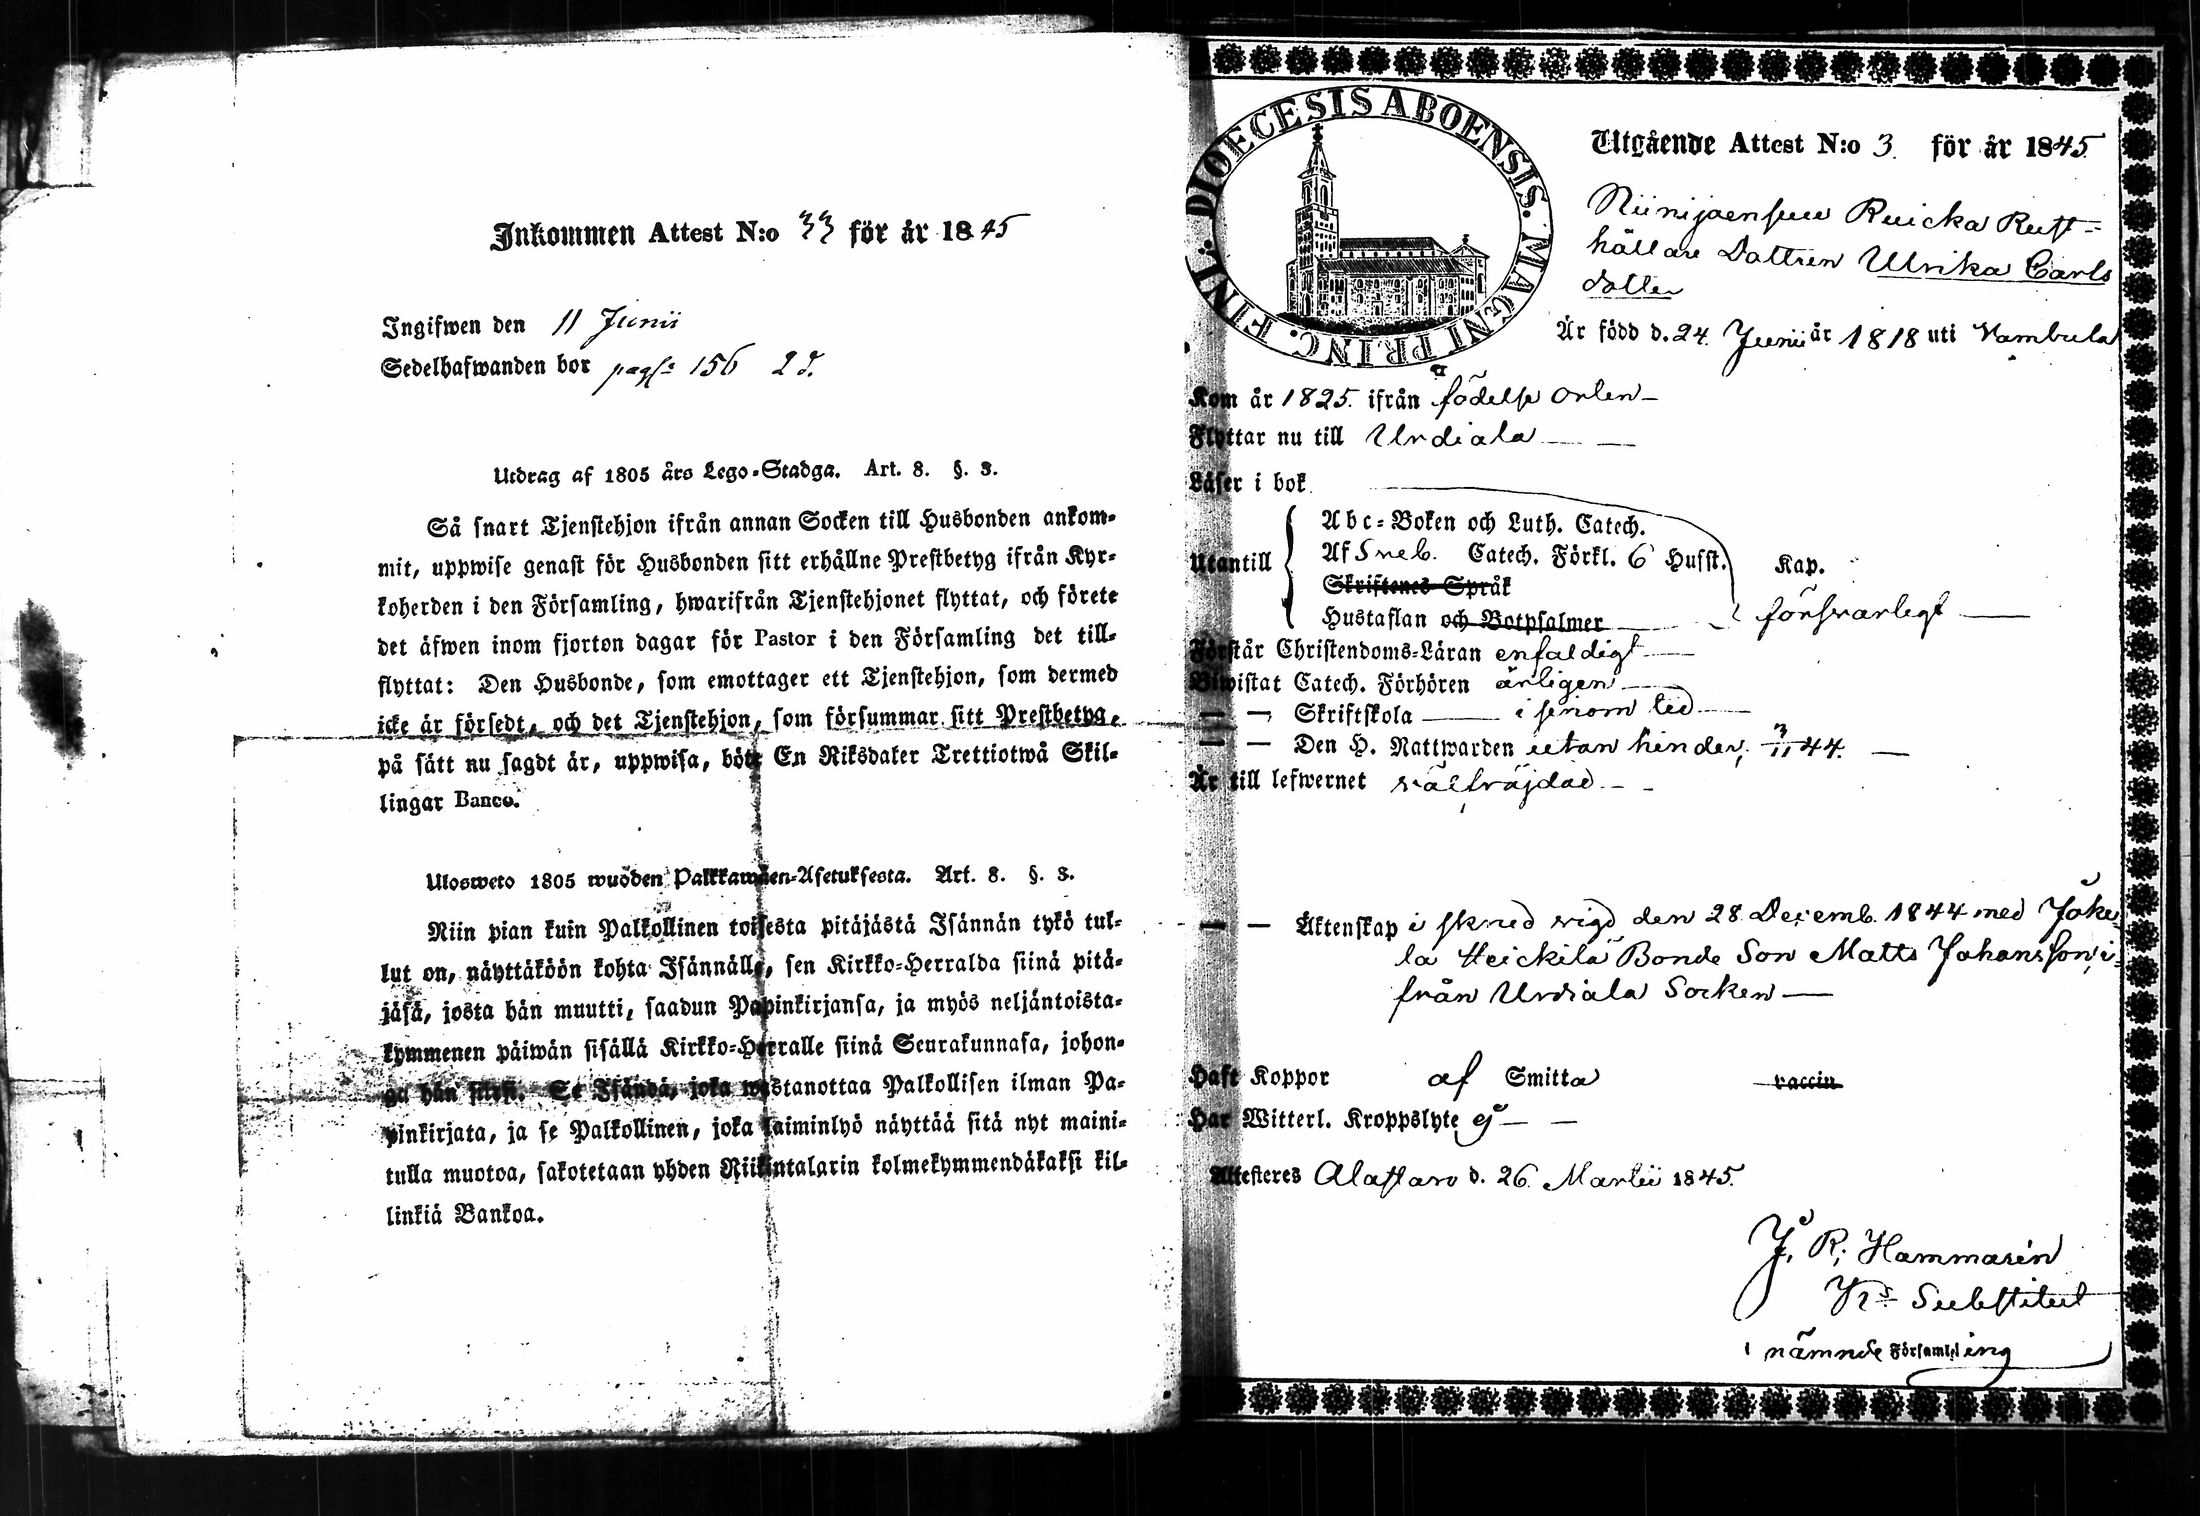 Inkommen Attest N:o 33 för år 1845
Ingifwen den 11 Junii
Sedelhafwanden bor pag: 156 2 d.
Utdrag af 1805 års Lego-Stadga. Art. 8. §. 3.
Så snart Tjenstehjon ifrån annan Socken till Husbonden ankom-
mit, uppwise genast för Husbonden sitt erhållne Prestbetyg ifrån Kyr-
koherden i den Församling, hwarifrån Tjenstehjonet flyttat, och förete
det äfwen inom fjorton dagar för Pastor i den Församling det till-
flyttat: Den Husbonde, som emottager ett Tjenstehjon, som dermed
icke är försedt, och det Tjenstehjon, som försummar sitt Prestbetyg,
på sätt nu sagdt är, uppwisa, böte En Riksdaler Trettiotwå Skil-
lingar Banco.
Ulosweto 1805 wuoden Palkkawäen-Asetuksesta. Art. 8. §. 3.
Niin pian kuin Palkollinen toisesta pitäjästä Isännän tykö tul-
lut on, näyttäköön kohta Isännälle, sen Kirkko-Herralda siinä pitä-
jäsä, josta hän muutti, saadun Papinkirjansa, ja myös neljäntoista-
kymmenen päiwän sisällä Kirkko-Herralle siinä Seurakunnasa, johon-
ga hän Se Isändä, joka wastanottaa Palkollisen ilman Pa-
pinkirjata, ja se Palkollinen, joka laiminlyö näyttää sitä nyt maini-
tulla muotoa, sakotetaan yhden Riikintalarin kolmekymmendäkaksi kil-
linkiä Bankoa.
DIOECESIS ABOENSIS. MAGNI PRINC. FINL.
Utgående Attest N:o 3. för år 1845
Niinijoensuu Ruicka Rust-
hållare Dottren Ulrika Carls
dotter
Är född d. 24. Junii år 1818 uti Vambula
Kom år 1825. ifrån födelse orten
Flyttar nu till Urdiala
Läser i bok
Abc-Boken och Luth. Catech.
Utantill Af Sveb. Catech. Förkl. 6 Husst. Kap.
Skriftenes Språk
Hustaflan och Botpsalmer försvarligt
Förstår Christendoms-Läran enfaldigt
Biwistat Catech. Förhören årligen
— — Skriftskola i sinom tid
— — Den H. Nattwarden utan hinder, 3/11 44.
Är till lefwernet välfräjdad
— — Äktenskap i skred vigd den 28 Decemb. 1844 med Joke-
la Heickilä Bonde Son Matts Johansson, i-
från Urdiala Socken
Haft Koppor af Smitta vaccin
Har Witterl. Kroppslyte ej
Attesteres Alastaro d. 26 Martii 1845.
J. R. Hammarén
Substitut
i nämnde Församling